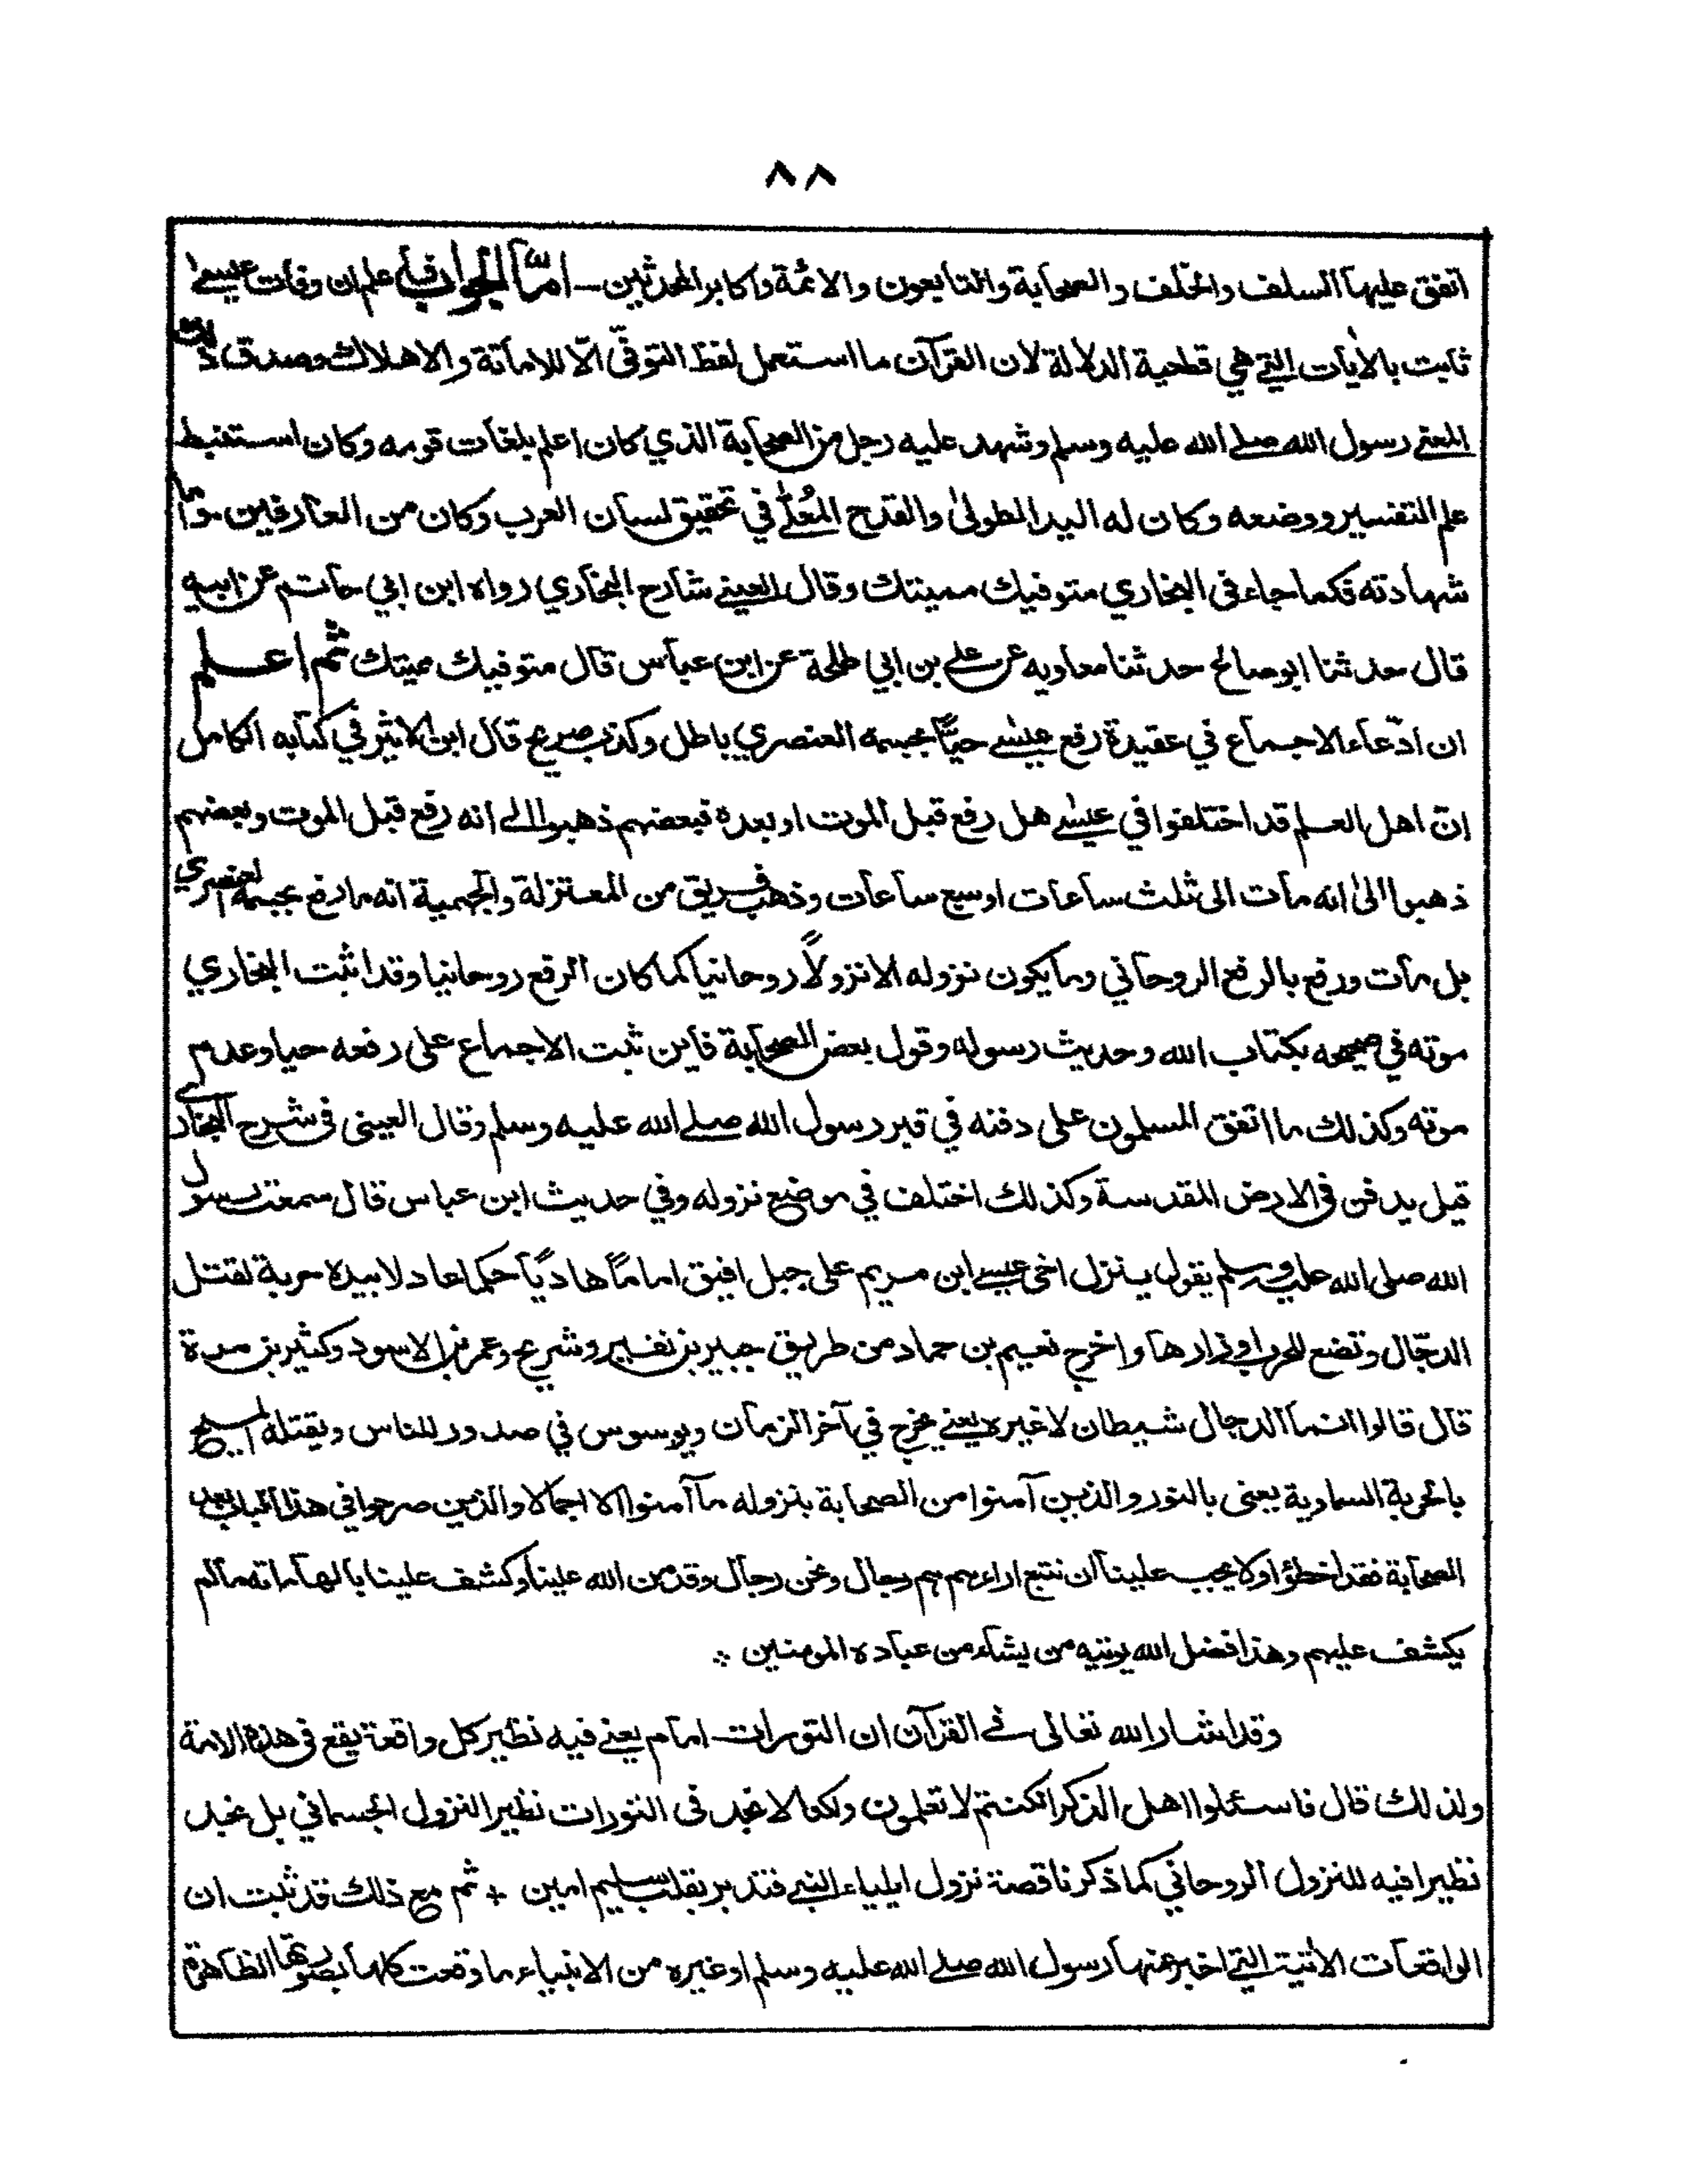 ٨٨
اتفق عليها السلف والخلف والصحابة والتابعون والائمة واكابر المحدثين — امّا الجواب فاعلم ان وفات عيسىٰ
ثابت بالاٰيات التي هي قطعية الدلالة لان القرآن ما استعمل لفظ التوفّي الّا للاماتة والاهلاك وصدق ذلك
المعنى رسول الله صلى الله عليه وسلم وشهد عليه رجل من الصحابة الذي كان اعلم بلغات قومه وكان استنبط
علم التفسير ووضعه وكان له اليد الطولىٰ والقدح المُعلّٰى في تحقيق لسان العرب وكان من العارفين واما
شهادته فكما جاء فى البخاري متوفيك مميتك وقال العيني شارح البخاري رواه ابن ابي حاتم عن ابيه
قال حدثنا ابو صالح حدثنا معاويه عن علي بن ابي طلحة عن ابن عباس قال متوفيك مميتك ثم اعلم
ان ادّعاء الاجماع في عقيدة رفع عيسٰى حيًّا بجسمه العنصري باطل وكذب صريح قال ابن الاثير في كتابه الكامل
انّ اهل العلم قد اختلفوا في عيسٰى هل رفع قبل الموت او بعده فبعضهم ذهبوا الى انه رفع قبل الموت وبعضهم
ذهبوا الىٰ انه مات الى ثلث ساعات او سبع ساعات وذهب فريق من المعتزلة والجهمية انه ما رفع بجسمه العنصري
بل مات ورفع بالرفع الروحاني وما يكون نزوله الا نزولًا روحانيا كما كان الرفع روحانيا وقد اثبت البخاري
موته في صحيحه بكتاب الله وحديث رسوله وقول بعض الصحابة فاين ثبت الاجماع على رفعه حيا وعدم
موته وكذلك ما اتفق المسلمون على دفنه في قبر رسول الله صلى الله عليه وسلم وقال العينى فى شرح البخارى
قيل يدفن فى الارض المقدسة وكذلك اختلف في موضع نزوله وفي حديث ابن عباس قال سمعت رسول
الله صلى الله عليه وسلم يقول ينزل اخى عيسى ابن مريم على جبل افيق اماماً هاديًا حكما عادلا بيده حربة لقتل
الدجّال وتضع الحرب اوزارها واخرج نعيم بن حماد من طريق جبير بن نفير وشريح وعمر بن الاسود وكثير بن مرة
قال قالوا انما الدجال شيطان لا غيره يعني يخرج في آخر الزمان ويوسوس في صدور للناس ويقتله المسيح
بالحربة السماوية يعنى بالنور والذين آمنوا من الصحابة بنزوله ما آمنوا الا اجمالا والذين صرحوا في هذا الباب بعد
الصحابة فقد اخطؤا ولا يجب علينا ان نتبع اراءهم هم رجال ونحن رجال وقد من الله علينا وكشف علينا بالهاماته ما لم
يكشف عليهم وهذا فضل الله يوتيه من يشاء من عباده المومنين ؞
وقد اشار الله تعالى فى القرآن ان التورات امام يعني فيه نظير كل واقعة يقع فى هذه الامة
ولذلك قال فاسئلوا اهل الذكر ان كنتم لا تعلمون ولكنا لا نجد فى التورات نظير النزول الجسماني بل نجد
نظيرا فيه للنزول الروحاني كما ذكرنا قصة نزول ايلياء النبي فتدبر بقلب سليم امين + ثم مع ذلك قد ثبت ان
الواقعات الاٰتية التي اخبر عنها رسول الله صلى الله عليه وسلم او غيره من الانبياء ما وقعت كلها بصورتها الظاهرة